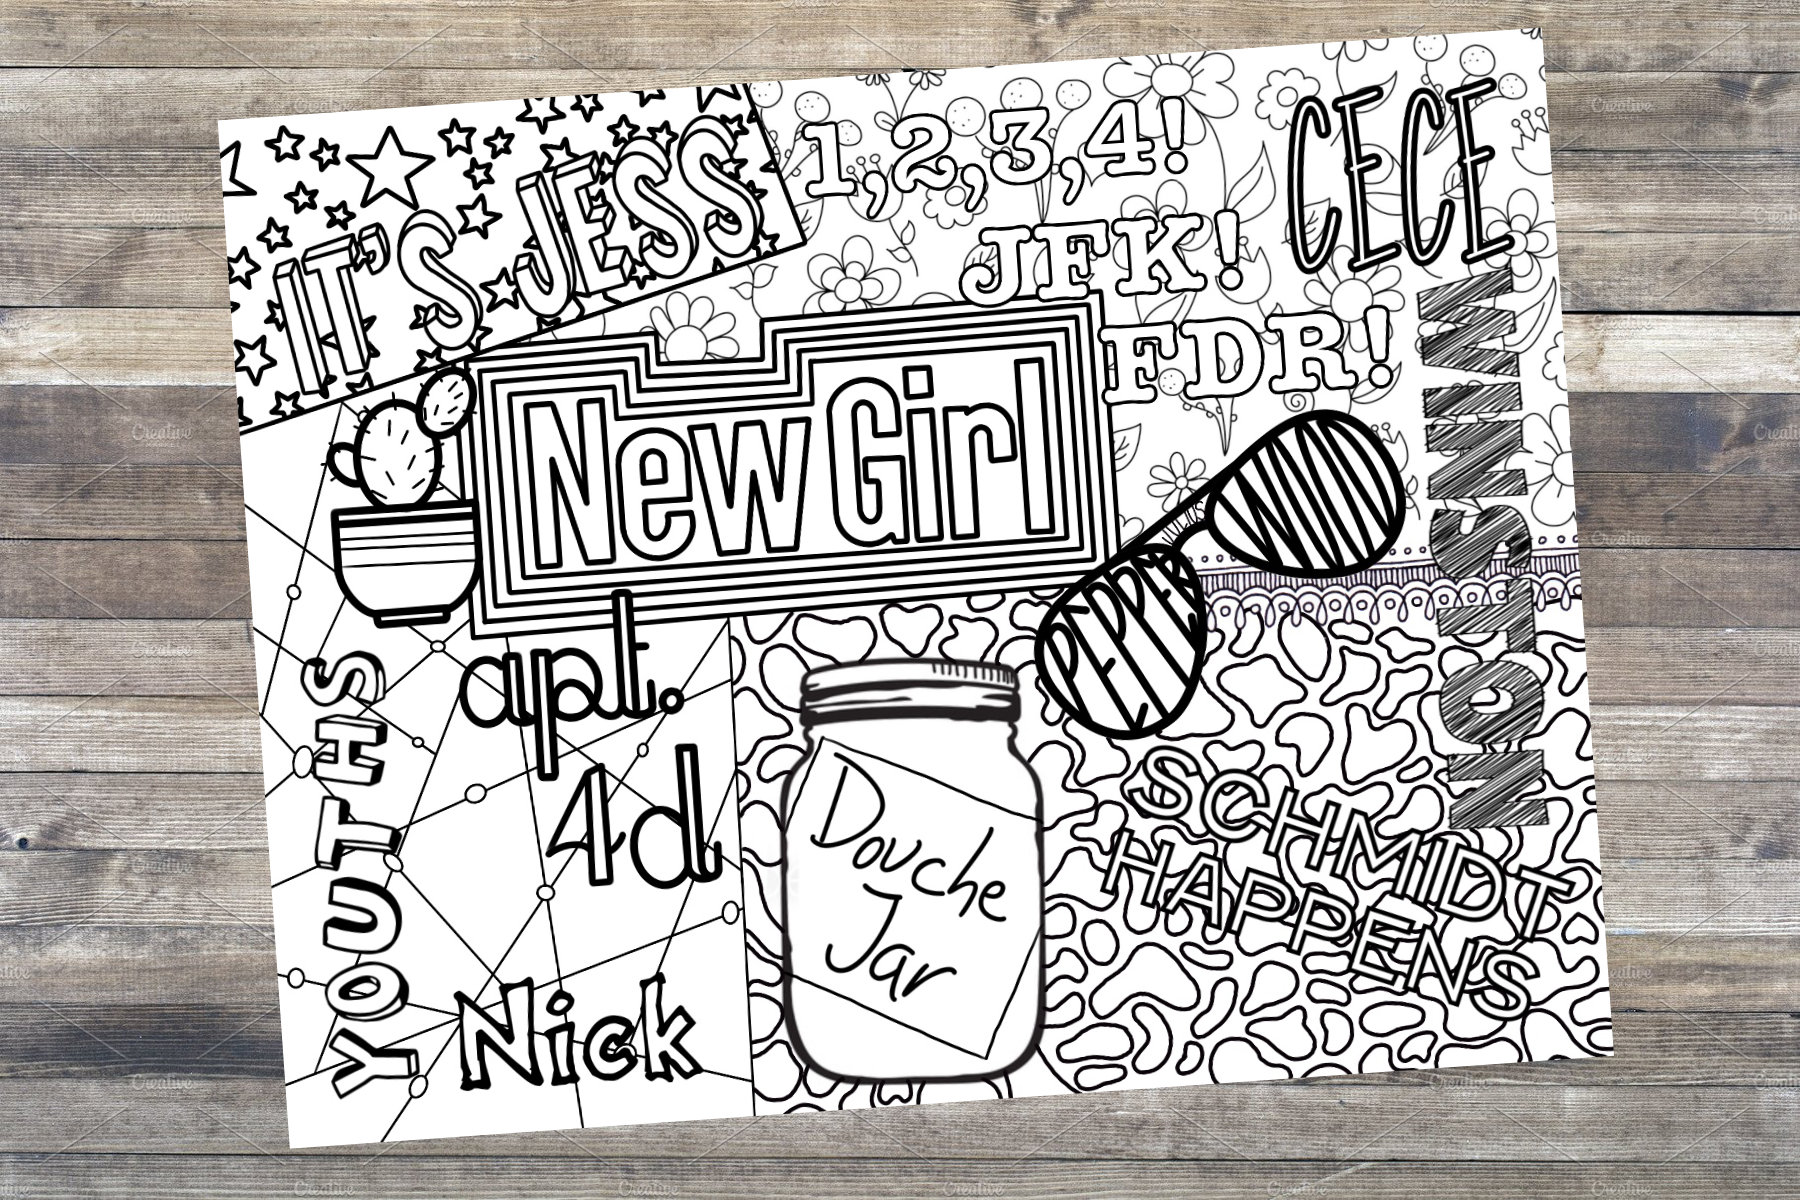 IT'S JESS
1,2,3,4!
JFK!
FDR!
CECE
WINSTON
New Girl
JULIUS
PEPPER
WOOD
apt.
4d
YOUTHS
Nick
Douche
Jar
SCHMIDT
HAPPENS
Creative
MARKET